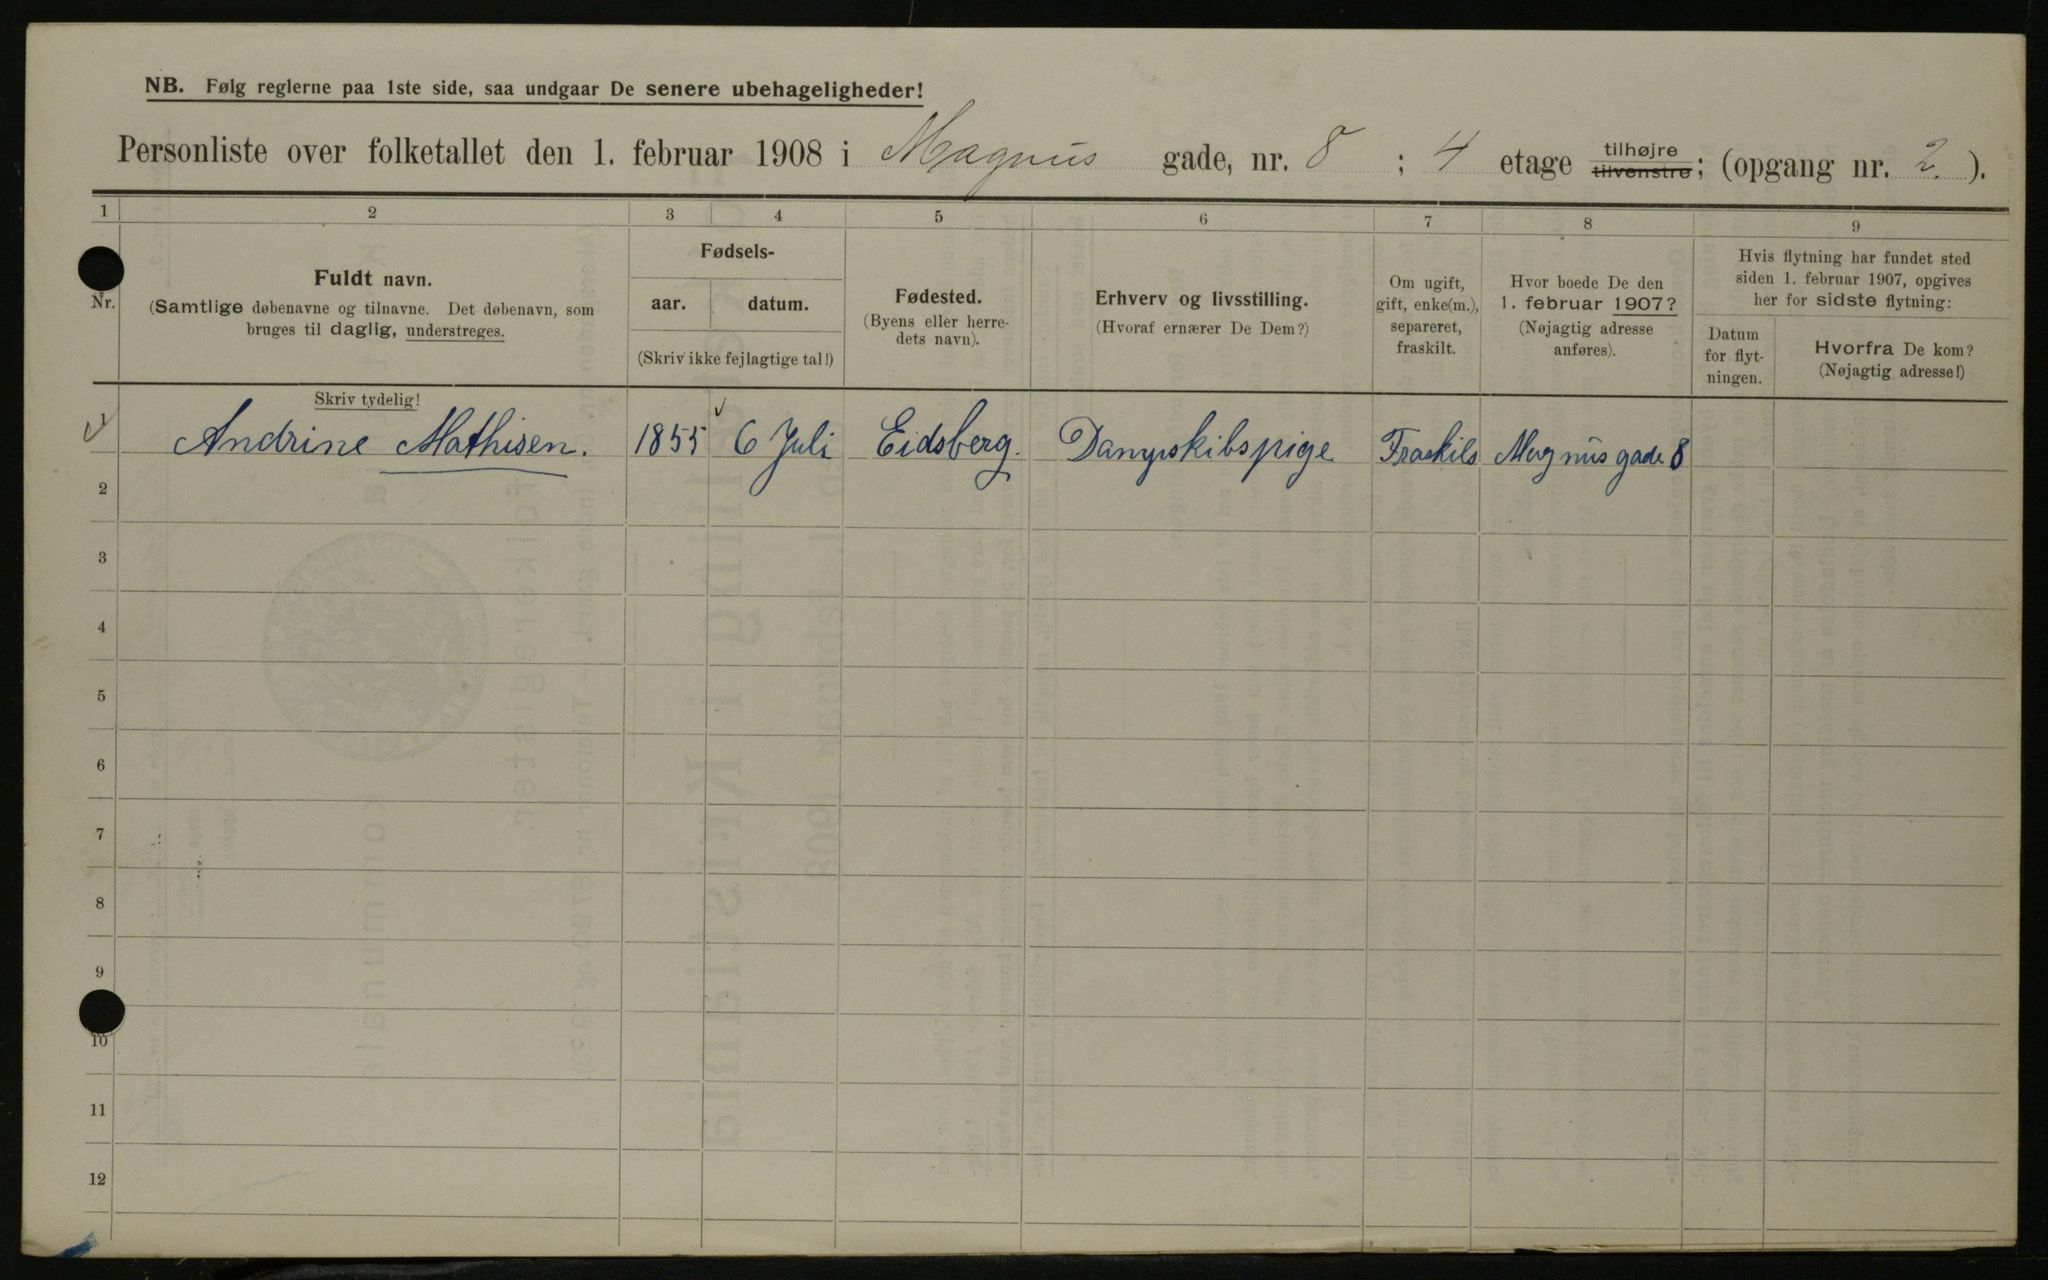 NB. Følg reglerne paa 1ste side, saa undgaar De senere ubehageligheder!
Personliste over folketallet den 1. februar 1908 i Magnus gade, nr. 8 ; 4 etage tilhøjre tilvenstre; (opgang nr. 2. ).
1 2 3 4 5 6 7 8 9
Nr.
Fuldt navn.
(Samtlige døbenavne og tilnavne. Det døbenavn, som
bruges til daglig, understreges.
Fødsels-
aar. datum.
(Skriv ikke fejlagtige tal!)
Fødested.
(Byens eller herre-
dets navn).
Erhverv og livsstilling.
(Hvoraf ernærer De Dem?)
Om ugift,
gift, enke(m.),
separeret,
fraskilt.
Hvor boede De den
1. februar 1907?
(Nøjagtig adresse
anføres).
Hvis flytning har fundet sted
siden 1. februar 1907, opgives
her for sidste flytning:
Datum
for flyt-
ningen.
Hvorfra De kom?
(Nøjagtig adresse!)
Skriv tydelig!
1 Andrine Mathisen. 1855 6 Juli Eidsberg. Dampskibspige Fraskils Magnusgade 8
2
3
4
5
6
7
8
9
10
11
12